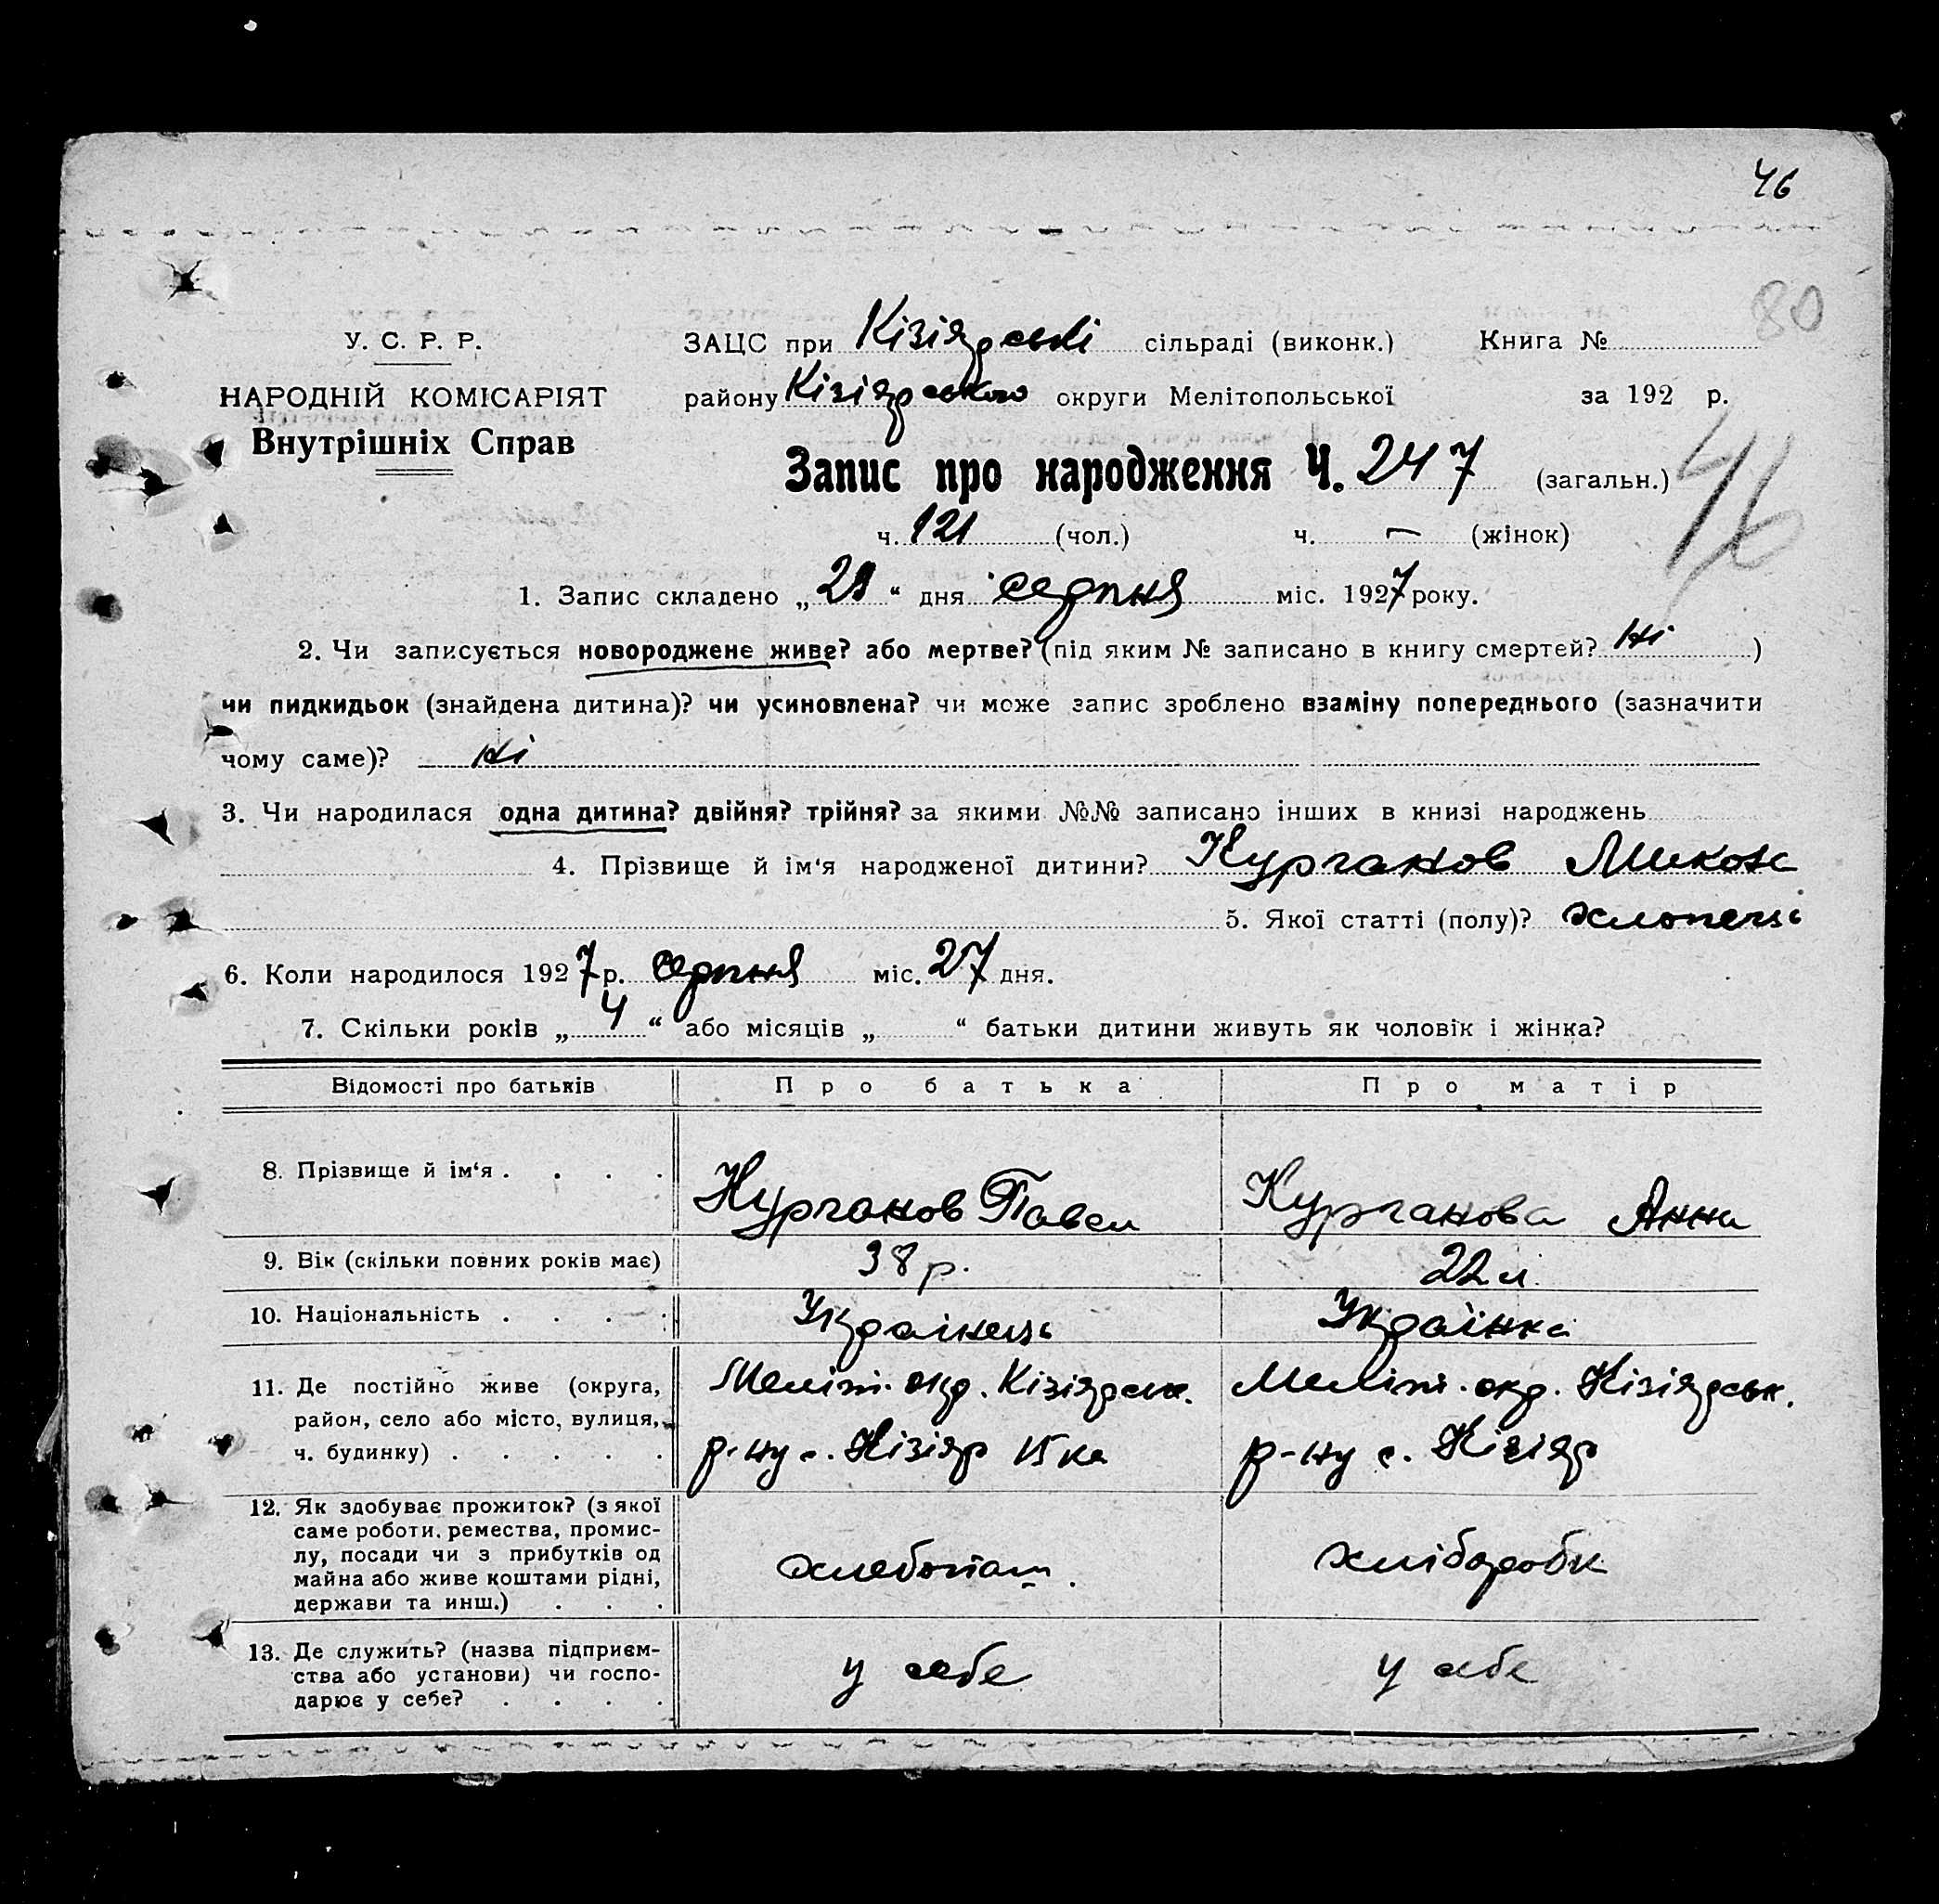 46
80
У. С. Р. Р.
НАРОДНІЙ КОМІСАРІЯТ
Внутрішніх Справ
ЗАЦС при Кізіярські сільраді (виконк.) Книга №
району Кізіярського округи Мелітопольської за 192 р.
Запис про народження Ч. 247 (загальн.)
46
ч. 121 (чол.) ч. — (жінок)
1. Запис складено „ “ дня серпня міс. 1927 року.
2. Чи записується новороджене живе? або мертве? (під яким № записано в книгу смертей? Ні )
чи пидкидьок (знайдена дитина)? чи усиновлена? чи може запис зроблено взаміну попереднього (зазначити
чому саме)? Ні
3. Чи народилася одна дитина? двійня? трійня? за якими №№ записано інших в книзі народжень
4. Прізвище й ім‘я народженої дитини? Курганов
5. Якої статті (полу)? хлопець
6. Коли народилося 1927 р. серпня міс. 27 дня.
7. Скільки років „ 4 “ або місяців „ “ батьки дитини живуть як чоловік і жінка?
Відомості про батьків Про батька Про матір
8. Прізвище й ім‘я . . . . Курганов Павел Курганова Анна
9. Вік (скільки повних років має) 38 р. 22 л.
10. Національність . . . . Українець Українка
11. Де постійно живе (округа, район, село або місто, вулиця, ч. будинку) . . . . .
Меліт. окр. Кізіярськ. Меліт. окр. Кізіярськ.
р-ну с. Кізіяр р-ну с. Кізіяр
12. Як здобуває прожиток? (з якої
саме роботи, ремества, промис-
лу, посади чи з прибутків од
майна або живе коштами рідні,
держави та инш.) . . .
хлебопаш. хлібороби
13. Де служить? (назва підприєм-
ства або установи) чи госпо-
дарює у себе? . . . .
у себе у себе